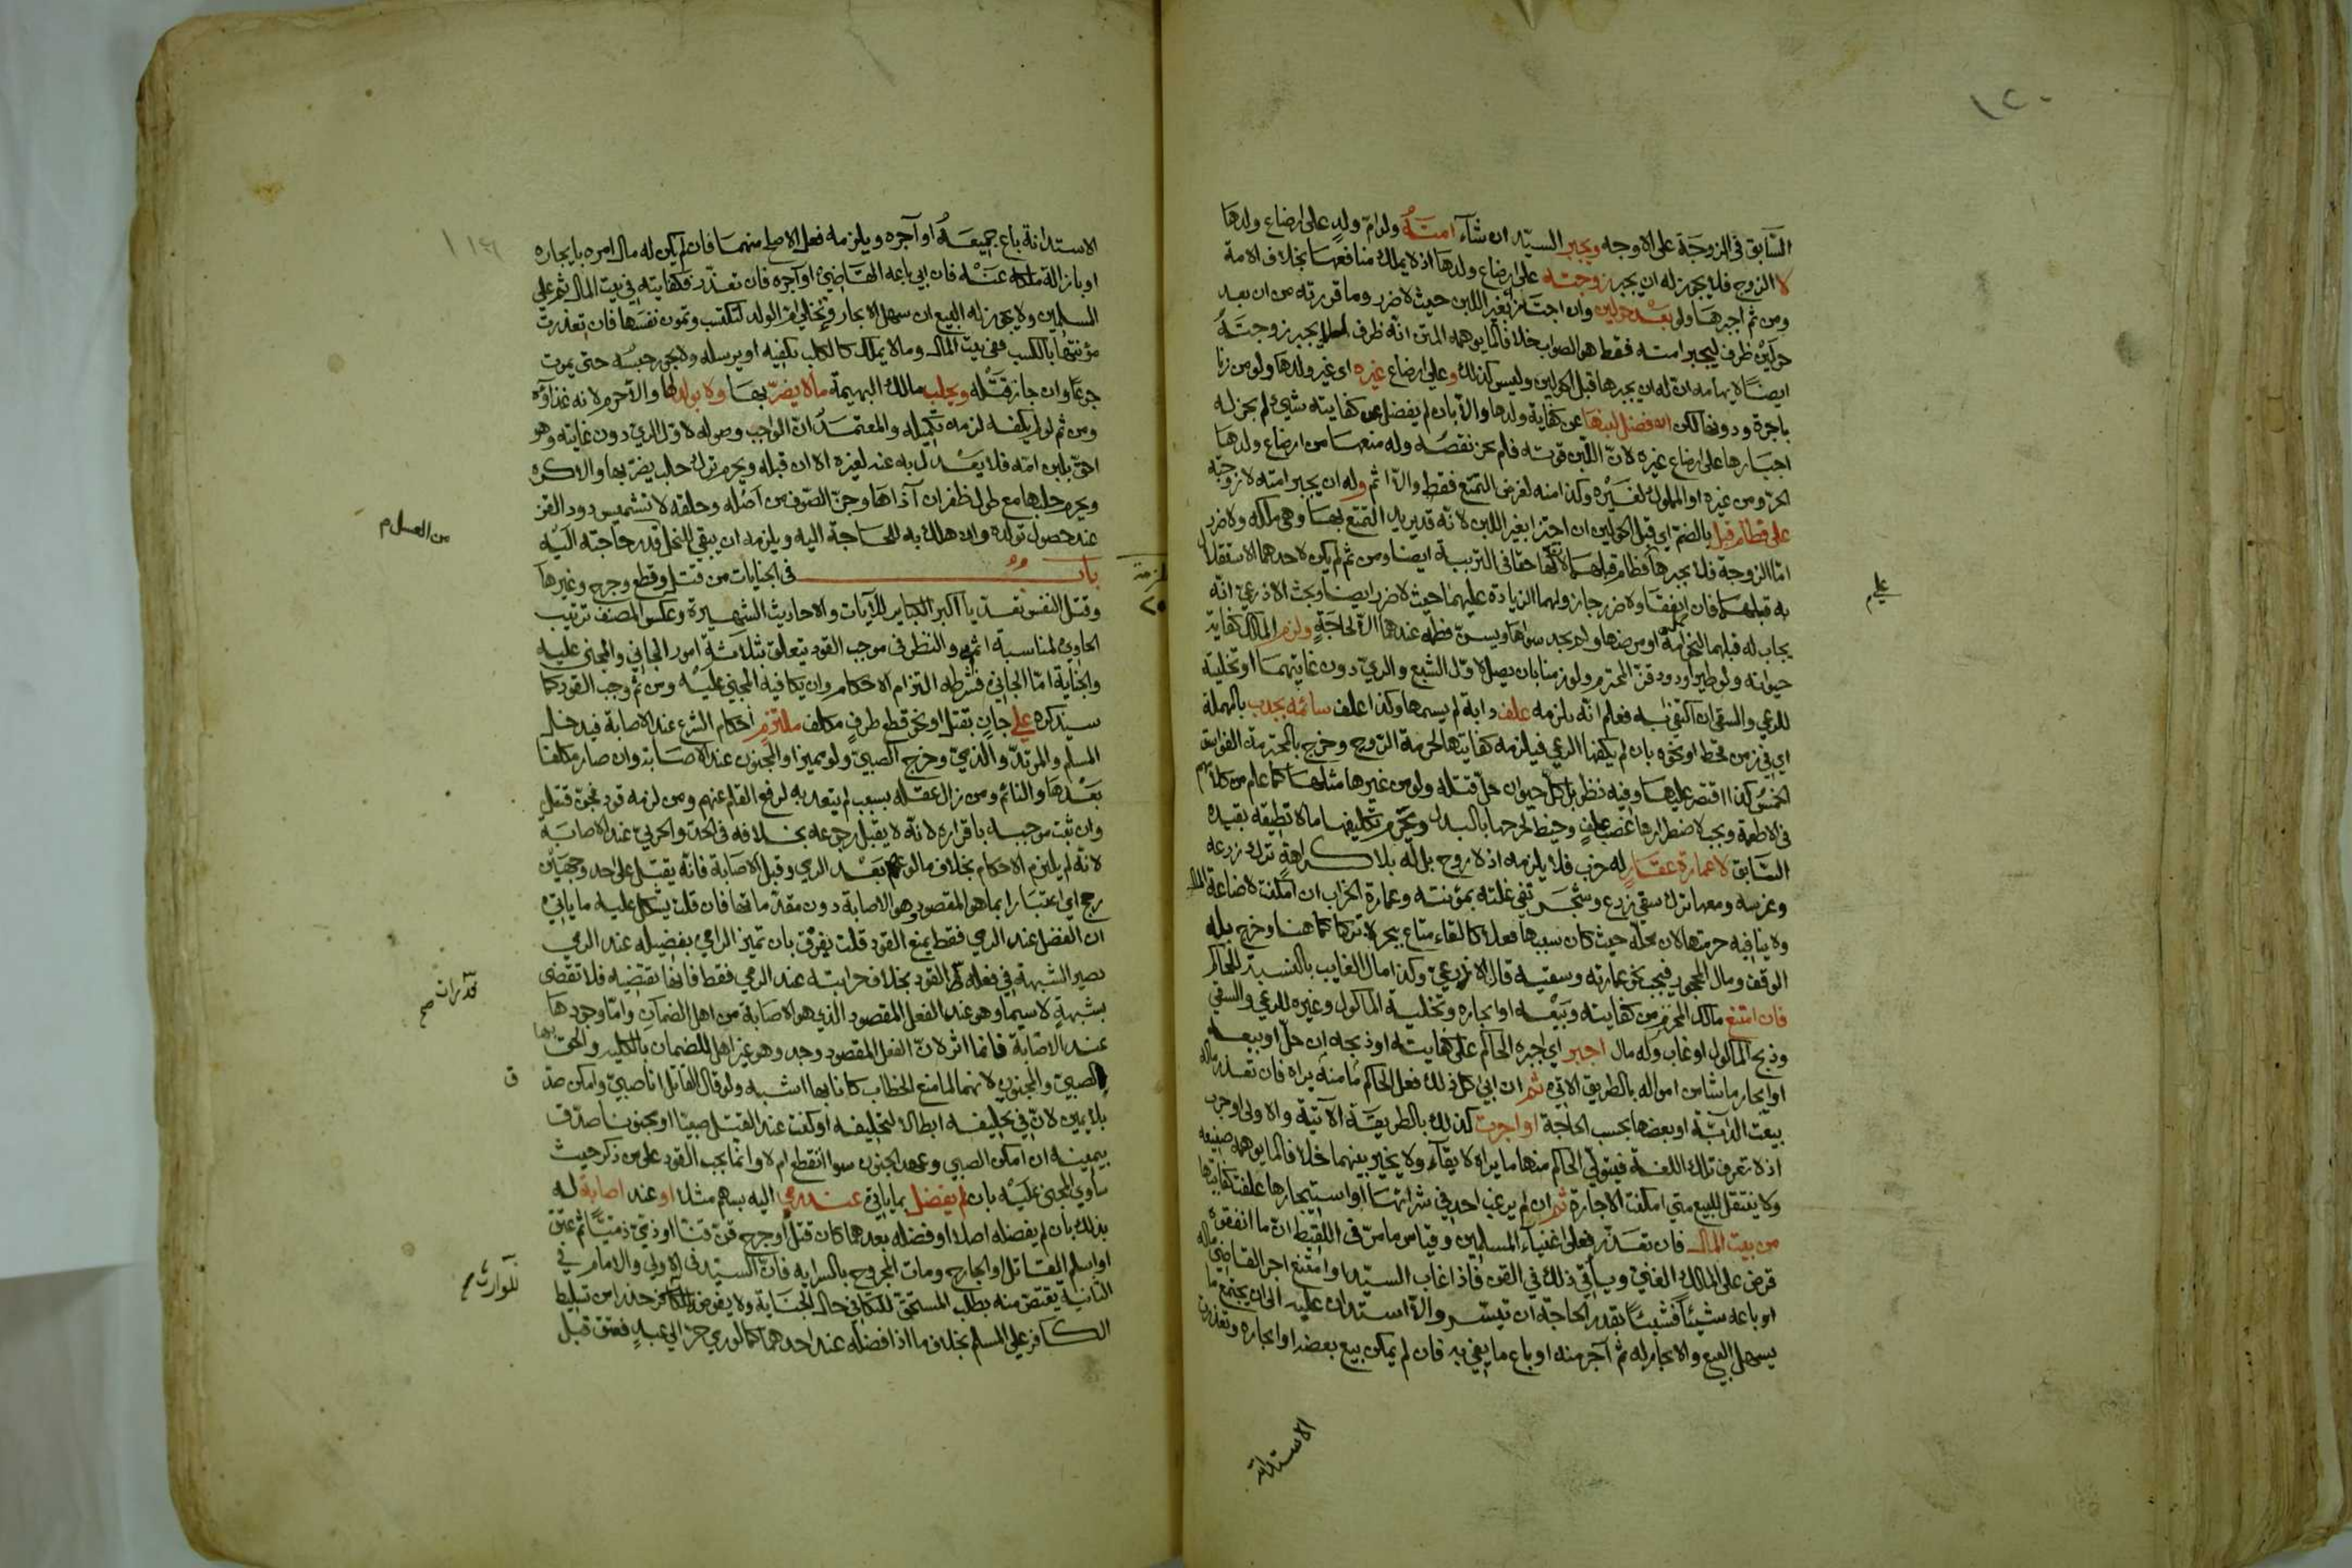 ١٢٠
السابق في الزوجة على الاوجه ويجبر السيد ان شآء امته ولو ام ولد على ارضاع ولدها
لا الزوج فلا يجوز له ان يجبر زوجته على ارضاع ولدها اذ لا يملك منافعها بخلاف الامة
ومن ثم اجبرها ولو بعد حولين وان اجتزا بغير اللبن حيث لا ضرر وما قررته من ان بعد
حولين ظرف ليجبر امته فقط هو الصواب خلافا لما يوهمه المتن انه ظرف يجبر زوجته
ايضا لايهامه ان له ان يجبرها قبل الحولين وليس كذلك وعلى ارضاع غيره اى غير ولدها ولو من زنا
باجرة ودونها لكن ان فضل لبنها عن كفاية ولدها والا بان لم يفضل عن كفايته شيئ لم يجز له
اجبارها على ارضاع غيره لان اللبن قوته فلم يجز نقصه وله منعها من ارضاع ولدها
الحر ومن غيره او المملوك لغيره وكذا منه لغرض التمتع فقط والا اثم وله ان يجبر امته لا زوجته
على فطام قبل بالضم اي قبل الحولين ان اجتزا بغير اللبن لانه قد يريد التمتع بها وهى ملكه ولا ضرر
اما الزوجة فلا يجبرها لفطام قبلهما لان لها حقا في التربية ايضا ومن ثم لم يكن لاحدهما الاستقلال
به قبلهما فان اتفقا ولا ضرر جاز ولهما الزيادة عليهما حيث لا ضرر ايضا وبحث الاذرعي انه
علم
يجاب له قبلهما لنحو او مرضها ولم يجد سواها ويسن فطمه عندهما الا لحاجة ولزم المالك كفاية
حيوانه ولو طيرا ودود قز المحترم ولو زمنا بان يصل لاول الشبع والري دون غايتهما او تخليته
للرعي والسقي ان اكتفى به فعلم انه يلزمه علف دابة لم يسمها وكذا علف سائمه بجدب بالمهملة
اي في زمن قحط او نحوه بان لم يكفها الرعي فيلزمه كفايتها لحرمة الروح وخرج بالمحترمة الفواسق
الخمس كذا اقتصر عليها وفيه نظر بل كل حيوان حل قتله ولو من غيرها مثلها كما علم من كلامهم
في الاطعمة ويجب لاضطرارها غصب علف وخيط لجرحها بالبدل ويحرم تكليفها مالا تطيقه بقيده
السابق لا عمارة عقار له خرب فلا يلزمه اذ لا روح بل له بلا كراهة ترك زرعه
وغرسه ومعها ترك سقي زرع وشجر تفي غلته بمؤنته وعمارة الخراب ان امكنت لاضاعة المال
ولا ينافيه حرمتها لان محله حيث كان سببها فعلا كالقاء متاع ببحر لا تركا كما هنا وخرج بله
الوقف ومال المحجور فيجب نحو عمارته وسقيه قال الاذرعي وكذا مال الغايب بالنسبة للحاكم
فان امتنع مالك المحترم من كفايته وبيعه او ايجاره وتخلية الماكول وغيره للرعي والسقي
وذبح الماكول او غاب وله مال اجبر اي اجبره الحاكم على كفايته او ذبحه ان حل او بيعه
او ايجار ما شا من امواله بالطريق الاتي ثم ان ابي كل ذلك فعل الحاكم ما منه يراه فان تعذر ماله
بيعت الدابة او بعضها بحسب الحاجة او اجرت كذلك بالطريقة الآتية والاولى اوجرت
اذ لا تعرف تلك اللغة فيتولى الحاكم منها ما يراه لايقآء ولا يخير بينهما خلافا لما يوهمه صنيعه
ولا ينتقل للبيع متى امكنت الاجارة ثم ان لم يرغب احد في شرائها او استيجارها علفت كفايتها
من بيت المال فان تعذر فعلى اغنيآء المسلمين وقياس ما مر في اللقيط ان ما انفقوه
قرض على المالك الغني وياتي ذلك في القن فاذا غاب السيد او امتنع اجر القاضي ماله
او باعه شيئا فشيئا بقدر الحاجة ان تيسر والا استدان عليه الى ان يجتمع ما
يسهل البيع والايجار له ثم آجر منه او باع ما يفي به فان لم يمكن بيع بعضه او ايجاره وتعذرت
الاستدانة
الاستدانة باع جميعه او آجره ويلزمه فعل الاصلح منهما فان لم يكن له مال امره بايجاره
او بازالة ملكه عنه فان ابي باعه القاضي او آجره فان تعذر فكفايته في بيت المال ثم على
المسلمين ولا يجوز له البيع ان سهل الايجار وتخلي ام الولد لتكتسب وتمون نفسها فان تعذرت
مؤنتها بالكسب ففي بيت المال وما لا يملك كالكلب يكفيه او يرسله ولا يجوز حبسه حتى يموت
جوعا وان جاز قتله ويحلب مالك البهيمة مالا يضر بها ولا بولدها والا حرم لانه غذاؤه
ومن ثم لو لم يكفه لزمه تكميله والمعتمد ان الواجب وصوله لاول الري دون غايته وهو
احق بلبن امه فلا يعدل به عنه لغيره الا ان قبله ويحرم ترك حلب يضر بها والا كره
ويحرم حلبها مع طول ظفر ان آذاها وجز الصوف من اصله وحلقه لا تشميس دود القز
عند حصول توليده وان هلك به للحاجة اليه ويلزمه ان يبقي للنحل قدر حاجته اليه
من العسل م
باب في الجنايات من قتل وقطع وجرح وغيرها
وقتل النفس تعديا اكبر الكباير للآيات والاحاديث الشهيرة وعكس المصنف ترتيب
الحاوي لمناسبة اتم والنظر في موجب القود يتعلق بثلاثة امور الجاني والمجنى عليه
والجناية اما الجاني فشرطه التزام الاحكام وان يكافيه المجني عليه ومن ثم وجب القود كما
سيذكره على جان بقتل او نحو قطع طرف مكلف ملتزم احكام الشرع عند الاصابة فيدخل
المسلم والمرتد والذمي وخرج الصبي ولو مميزا والمجنون عند الاصابة وان صار مكلفا
بعدها والنائم ومن زال عقله بسبب لم يتعد به لرفع القلم عنهم ومن لزمه قود فجن قتل
وان ثبت موجبه باقراره لانه لا يقبل رجوعه بخلافه في الحد والحربي عند الاصابة
لانه لم يلتزم الاحكام بخلاف ما لو بعد الرمي وقبل الاصابة فانه يقتل على احد وجهين
رجح اي اعتبارا بما هو المقصود وهو الاصابة دون مقدماتها فان قلت يشكل عليه ما ياتي
ان الفضل عند الرمي فقط يمنع القود قلت يفرق بان تميز الرامي بفضيلة عند الرمي
تصير الشبهة في فعله كدر القود بخلاف حرابته عند الرمي فقط فانها تقتضيه فلا تقتضى
بشبهة لاسيما وهو عند الفعل المقصود الذي هو الاصابة من اهل الضمان واما وجودها
عند الاصابة فانما اثر لان الفعل المقصود وجد وهو غير اهل للضمان بالكلية والحق بها
الصبي والمجنون لانهما لما منع الخطاب كانا بها اشبه ولو قال القاتل انا صبي وامكن صدق
بلا يمين لان في تحليفه ابطالا لتحليفه او كنت عند القتل صبيا او مجنونا صدق
بيمينه ان امكن الصبي وعهد الجنون سوا انقطع ام لا وانما يجب القود على من ذكر حيث
ساوي المجنى عليه بان لم يفضل بما ياتي عند رمي اليه بسهم مثلا او عند اصابة له
بذلك بان لم يفضله اصلا او فضله بعدهما كان قتل او جرح قن قنا او ذمي ذميا ثم عتق
او اسلم القاتل او الجارح ومات المجروح بالسراية فان السيد في الاولى والامام في
للوارث م
الثانية يقتص منه بطلب المستحق للتكافى حال الجناية ولا يفوض للكافر حذرا من تسليط
الكافر على المسلم بخلاف ما اذا فضله عند احدهما كما لو رمي حر الى عبد فعتق قبل